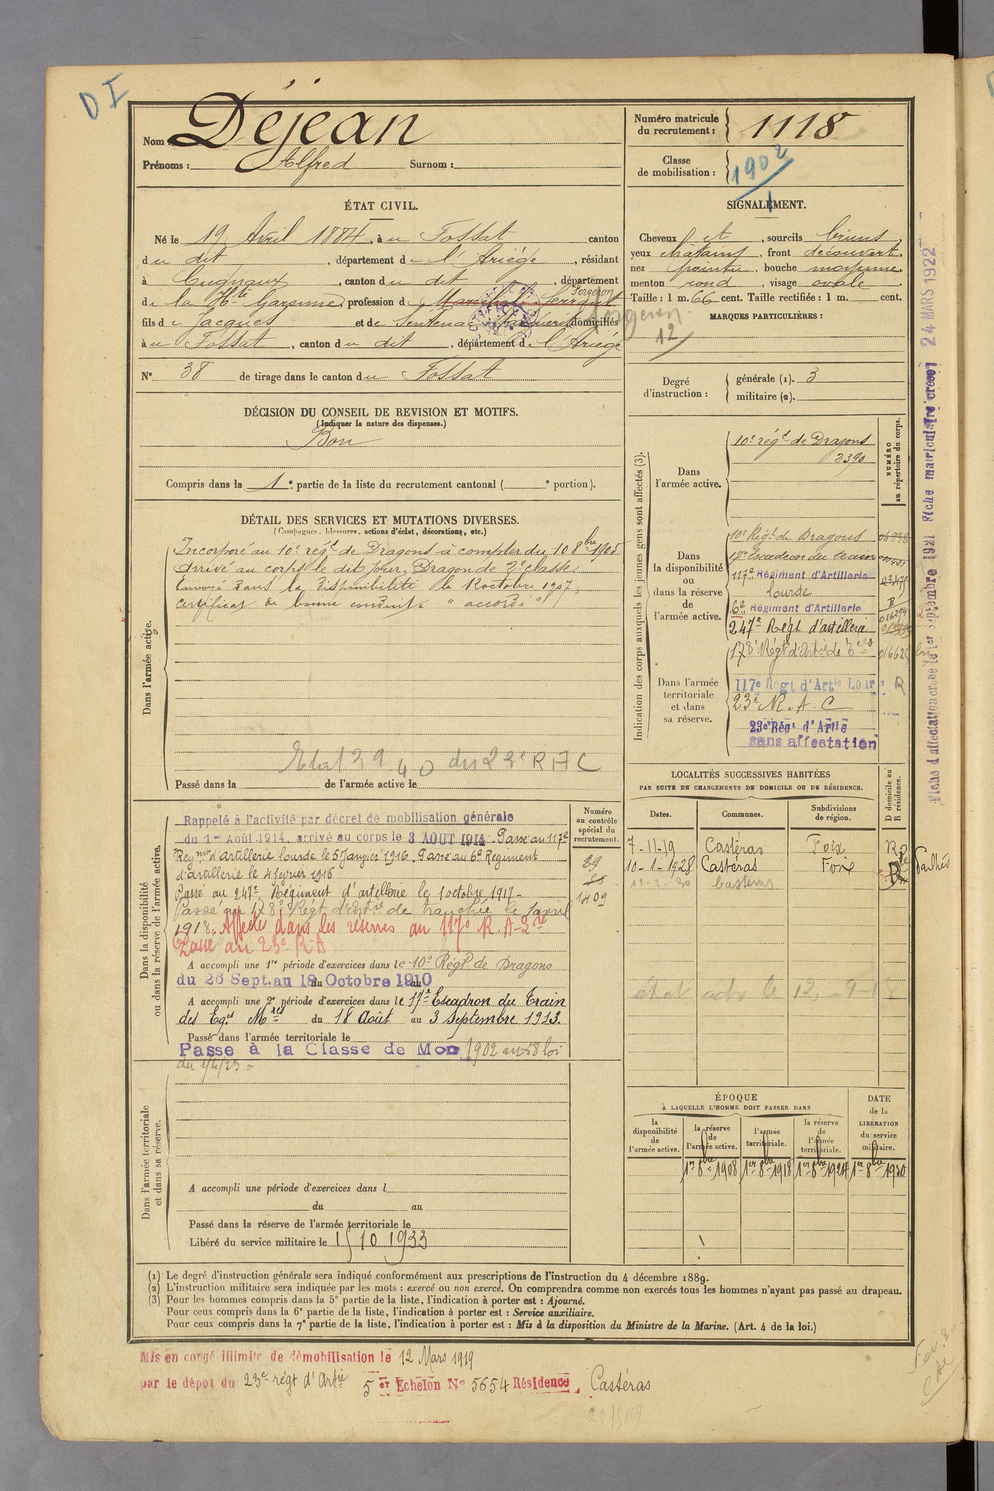 D I
Nom Déjean
Prénoms : Alfred Surnom :
Numéro matricule du recrutement : 1118
Classe de mobilisation : 1902
ÉTAT CIVIL.
Né le 19 Avril 1884, à u Fossat canton
d u dit, département d e l'Ariège, résidant
à Cugnaux, canton d u dit, département
d e la Hte Garonne, profession d e Maréchal-ferrant Forgeron
fils d e Jacques et de Sentenac domiciliés
à u Fossat, canton d u dit, département d e l'Ariège
N° 38 de tirage dans le canton d u Fossat
SIGNALEMENT.
Cheveux et, sourcils bruns,
yeux chatains, front découvert,
nez pointu, bouche moyenne,
menton rond, visage ovale.
Taille : 1 m. 66 cent. Taille rectifiée : 1 m. cent.
MARQUES PARTICULIÈRES :
forgeron
12
Degré d'instruction : générale (1). 3
militaire (2).
DÉCISION DU CONSEIL DE REVISION ET MOTIFS.
(Indiquer la nature des dispenses.)
Bon
Compris dans la 1e partie de la liste du recrutement cantonal ( e portion).
DÉTAIL DES SERVICES ET MUTATIONS DIVERSES.
(Campagnes, blessures, actions d'éclat, décorations, etc.)
Dans l'armée active.
Incorporé au 10e régt de Dragons à compter du 10 8bre 1905
Arrivé au corps le dit jour, Dragon de 2e classe.
Envoyé dans la disponibilité le 12 octobre 1907,
certificat de bonne conduite "accordé"
Etat 39 40 du 23e RAC
Passé dans la de l'armée active le
Indication des corps auxquels les jeunes gens sont affectés (3).
NUMÉRO au répertoire du corps.
Dans l'armée active.
10e régt de Dragons
2390
Dans la disponibilité ou dans la réserve de l'armée active.
10e Régt de Dragons
17e Escadron du train
117e Régiment d'Artillerie
lourde
6e Régiment d'Artillerie
247e Régt d'artillerie
178e Régt d'Artie de Tées
Dans l'armée territoriale et dans sa réserve.
117e Régt d'Artie Lour
23e R.A.C
23e Régt d'Artie
sans affectation
Fiche d'affectation créée le 1er septembre 1921 Fiche matriculaire créée 24 MARS 1922
Dans la disponibilité ou dans la réserve de l'armée active.
Numéro au contrôle spécial du recrutement.
Rappelé à l'activité par décret de mobilisation générale
du 1er Août 1914, arrivé au corps le 3 AOUT 1914. Passé au 117e
Régnt d'artillerie lourde le 5 Janvier 1916. Passé au 6e Régiment
d'artillerie le 4 février 1916
Passé au 247e Régiment d'artillerie le 1 octobre 1917-
Passé au 178e Régt d'Artie de tranchée le 1 janv
1918. Affecté dans les réserves au 117e R.A-L
Passé au 23e R.A
A accompli une 1re période d'exercices dans le 10e Régt de Dragons
du 26 Sept. au 18 Octobre 1910
A accompli une 2e période d'exercices dans le 17e Escadron du Train
des Eqs Mres du 18 Août au 3 Septembre 1913.
Passé dans l'armée territoriale le
Passé à la Classe de Mob 1902 art 58 loi
du 1/4/23 =
1409
LOCALITÉS SUCCESSIVES HABITÉES
PAR SUITE DE CHANGEMENTS DE DOMICILE OU DE RÉSIDENCE.
Dates. Communes. Subdivisions de région. D domicile ou R résidence.
7-11-19 Castéras Foix R
10-1-1928 Castéras Foix R Pailhès
Castéras
Dans l'armée territoriale et dans sa réserve.
A accompli une période d'exercices dans l
du au
Passé dans la réserve de l'armée territoriale le
Libéré du service militaire le 15 10 1933
ÉPOQUE
À LAQUELLE L'HOMME DOIT PASSER DANS
DATE de la LIBÉRATION du service militaire.
la disponibilité de l'armée active.
la réserve de l'armée active.
l'armée territoriale.
la réserve de l'armée territoriale.
1er 8bre 1908 1er 8bre 1918 1er 8bre 1924 1er 8bre 1930
(1) Le degré d'instruction générale sera indiqué conformément aux prescriptions de l'instruction du 4 décembre 1889.
(2) L'instruction militaire sera indiquée par les mots : exercé ou non exercé. On comprendra comme non exercés tous les hommes n'ayant pas passé au drapeau.
(3) Pour les hommes compris dans la 5e partie de la liste, l'indication à porter est : Ajourné.
Pour ceux compris dans la 6e partie de la liste, l'indication à porter est : Service auxiliaire.
Pour ceux compris dans la 7e partie de la liste, l'indication à porter est : Mis à la disposition du Ministre de la Marine. (Art. 4 de la loi.)
Mis en congé illimité de démobilisation le 12 Mars 1919
par le dépôt du 23e régt d'Artie 5er Echelon N° 5654 Résidence, Castéras